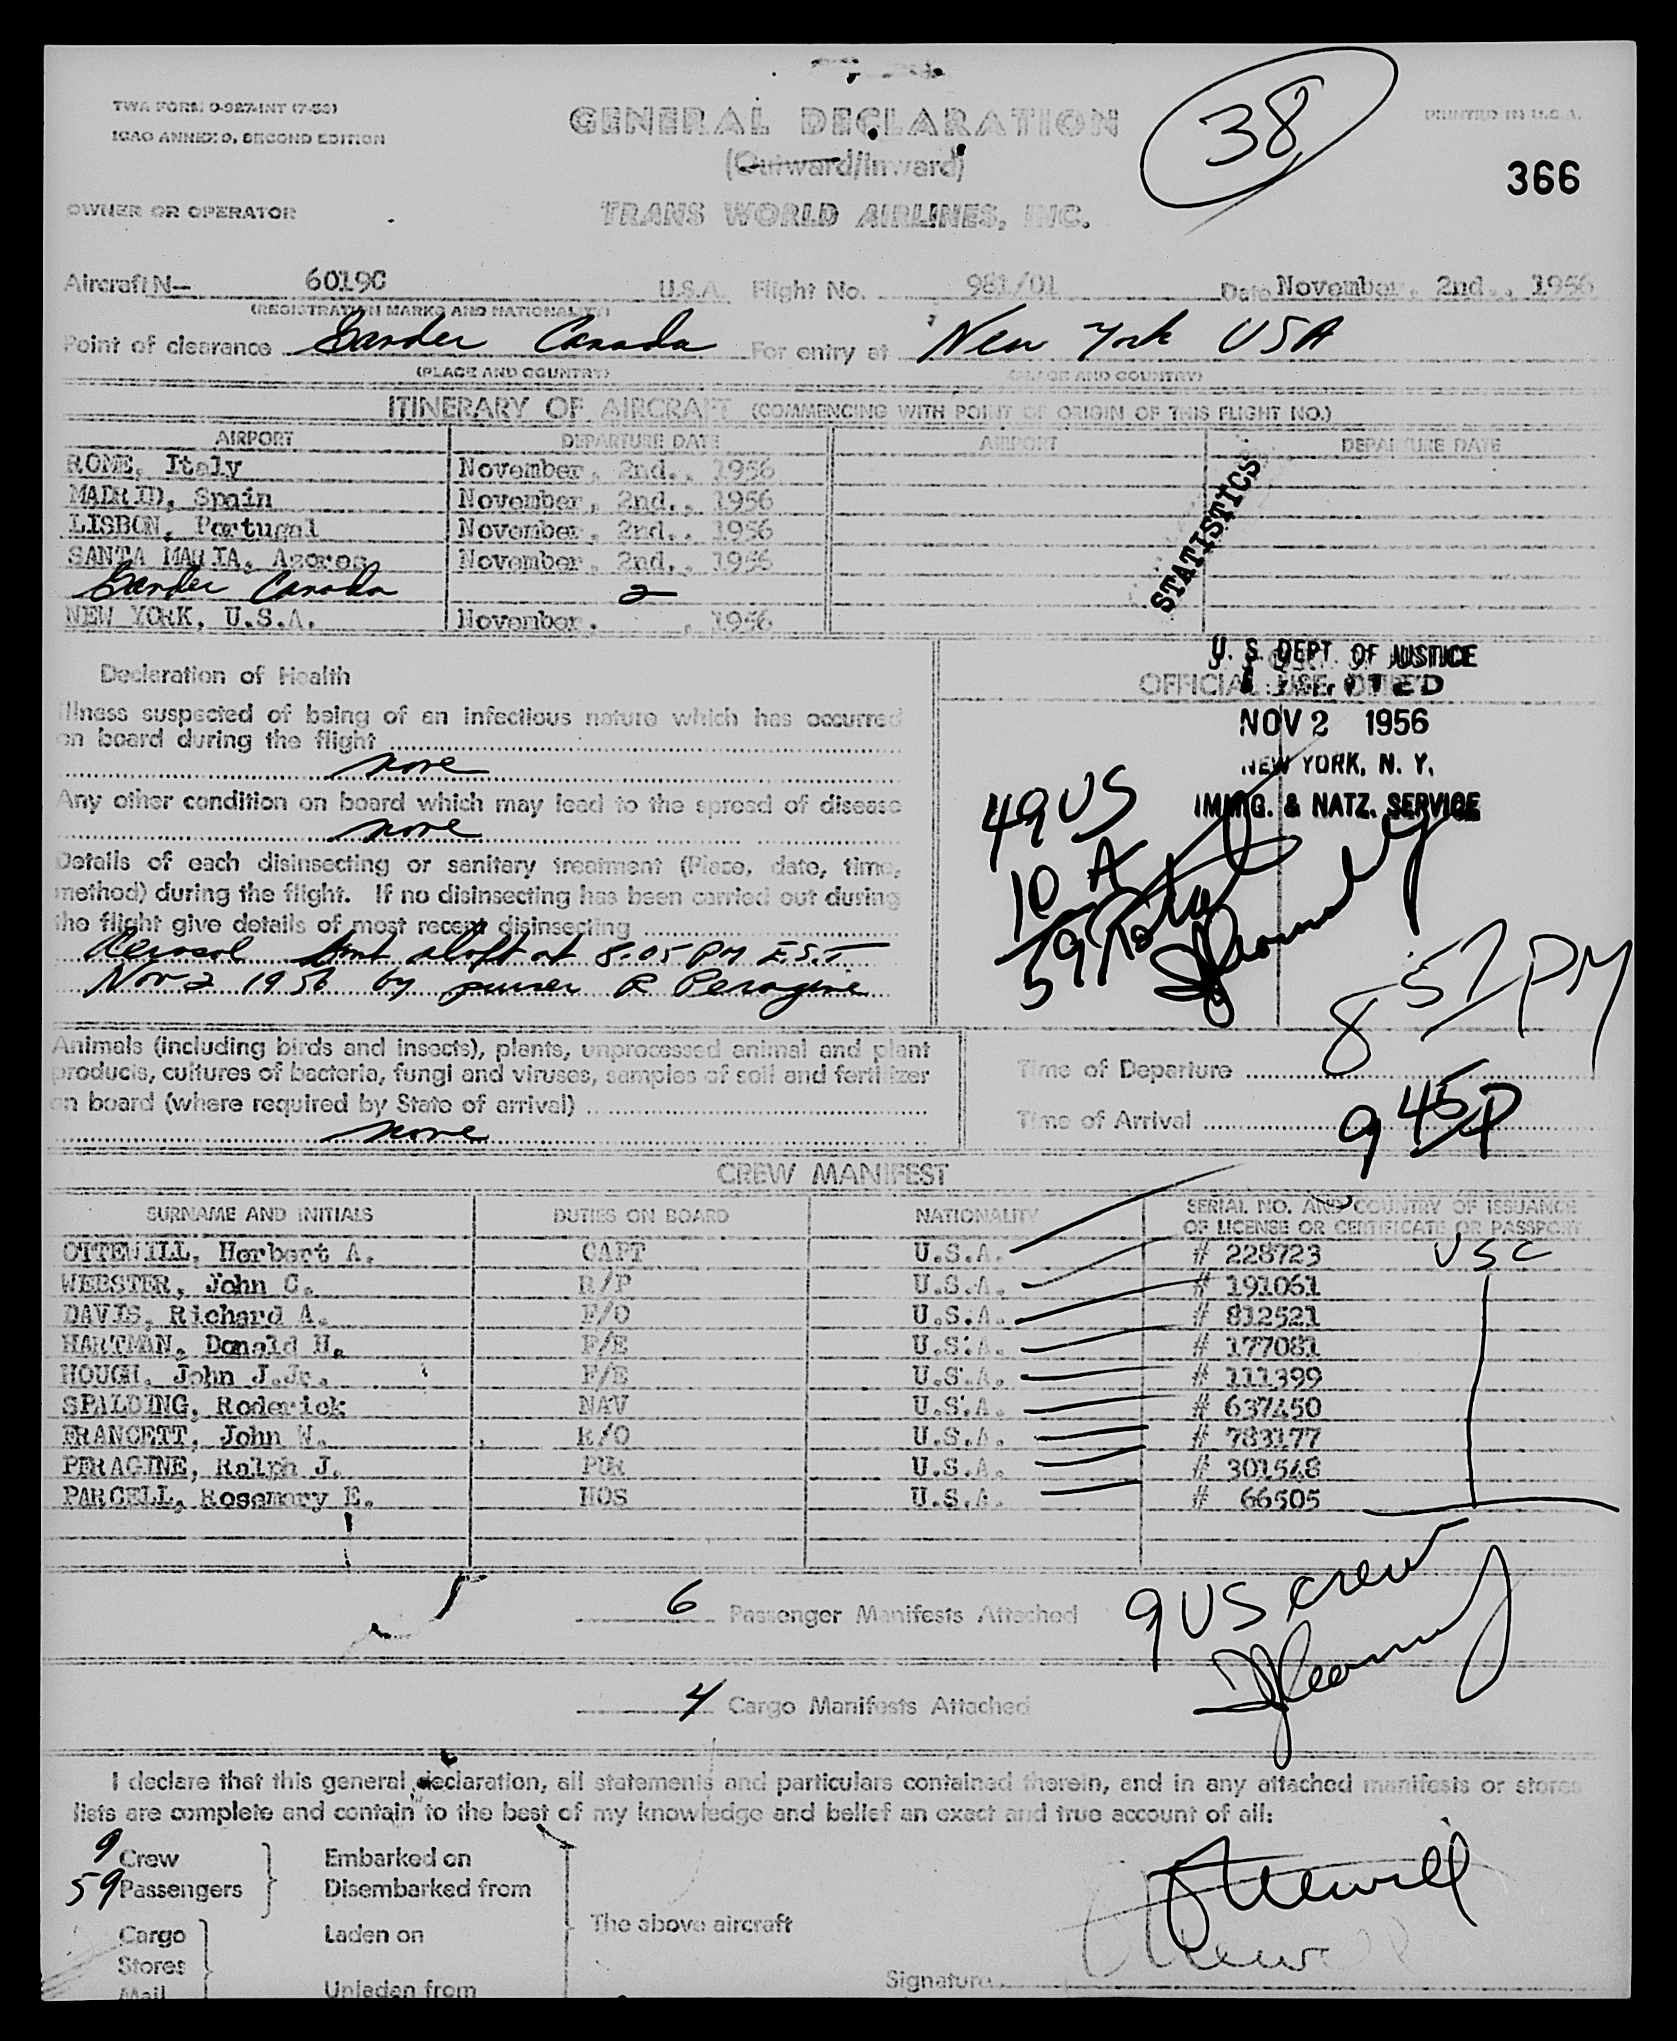 TWA FORM O-987-INT (7-56)
ICAO ANNEX 9, SECOND EDITION
GENERAL DECLARATION
(Outward/Inward)
38
PRINTED IN U.S.A.
366
OWNER OR OPERATOR
TRANS WORLD AIRLINES, INC.
Aircraft N— 6019C U.S.A. Flight No. 981/01 Date November, 2nd., 1956
(REGISTRATION MARKS AND NATIONALITY)
Point of clearance Gander Canada For entry at New York USA
(PLACE AND COUNTRY) (PLACE AND COUNTRY)
ITINERARY OF AIRCRAFT (COMMENCING WITH POINT OF ORIGIN OF THIS FLIGHT NO.)
AIRPORT DEPARTURE DATE AIRPORT DEPARTURE DATE
ROME, Italy November, 2nd., 1956
MADRID, Spain November, 2nd., 1956
LISBON, Portugal November, 2nd., 1956
SANTA MARIA, Azores November, 2nd., 1956
Gander Canada 2
NEW YORK, U.S.A. November, , 1956
STATISTICS
U. S. DEPT. OF JUSTICE
OFFICIAL USE ONLY
NOV 2 1956
NEW YORK, N. Y.
IMMIG. & NATZ. SERVICE
49 US
10 A
59 Total
Declaration of Health
Illness suspected of being of an infectious nature which has occurred
on board during the flight
none
Any other condition on board which may lead to the spread of disease
none
Details of each disinsecting or sanitary treatment (Place, date, time,
method) during the flight. If no disinsecting has been carried out during
the flight give details of most recent disinsecting
Aerosol bomb aloft at 8:05 PM E.S.T.
Nov 2 1956 by purser R Peragine
Animals (including birds and insects), plants, unprocessed animal and plant
products, cultures of bacteria, fungi and viruses, samples of soil and fertilizer
on board (where required by State of arrival)
none
Time of Departure 8:57 PM
Time of Arrival 9 45 P
CREW MANIFEST
SURNAME AND INITIALS DUTIES ON BOARD NATIONALITY SERIAL NO. AND COUNTRY OF ISSUANCE
OF LICENSE OR CERTIFICATE OR PASSPORT
OTTEWILL, Herbert A. CAPT U.S.A. # 228723 USC
WEBSTER, John C. R/P U.S.A. # 191061
DAVIS, Richard A. F/O U.S.A. # 812521
HARTMAN, Donald H. F/E U.S.A. # 177081
HOUGH, John J.Jr. F/E U.S.A. # 111399
SPALDING, Roderick NAV U.S.A. # 637450
FRANCETT, John W. R/O U.S.A. # 783177
PERAGINE, Ralph J. PUR U.S.A. # 301548
PARCELL, Rosemary E. HOS U.S.A. # 66505
6 Passenger Manifests Attached
9 US crew
4 Cargo Manifests Attached
I declare that this general declaration, all statements and particulars contained therein, and in any attached manifests or stores
lists are complete and contain to the best of my knowledge and belief an exact and true account of all:
9 Crew Embarked on
59 Passengers Disembarked from
The above aircraft
Cargo Laden on
Stores
Mail Unladen from
Signature Ottewill